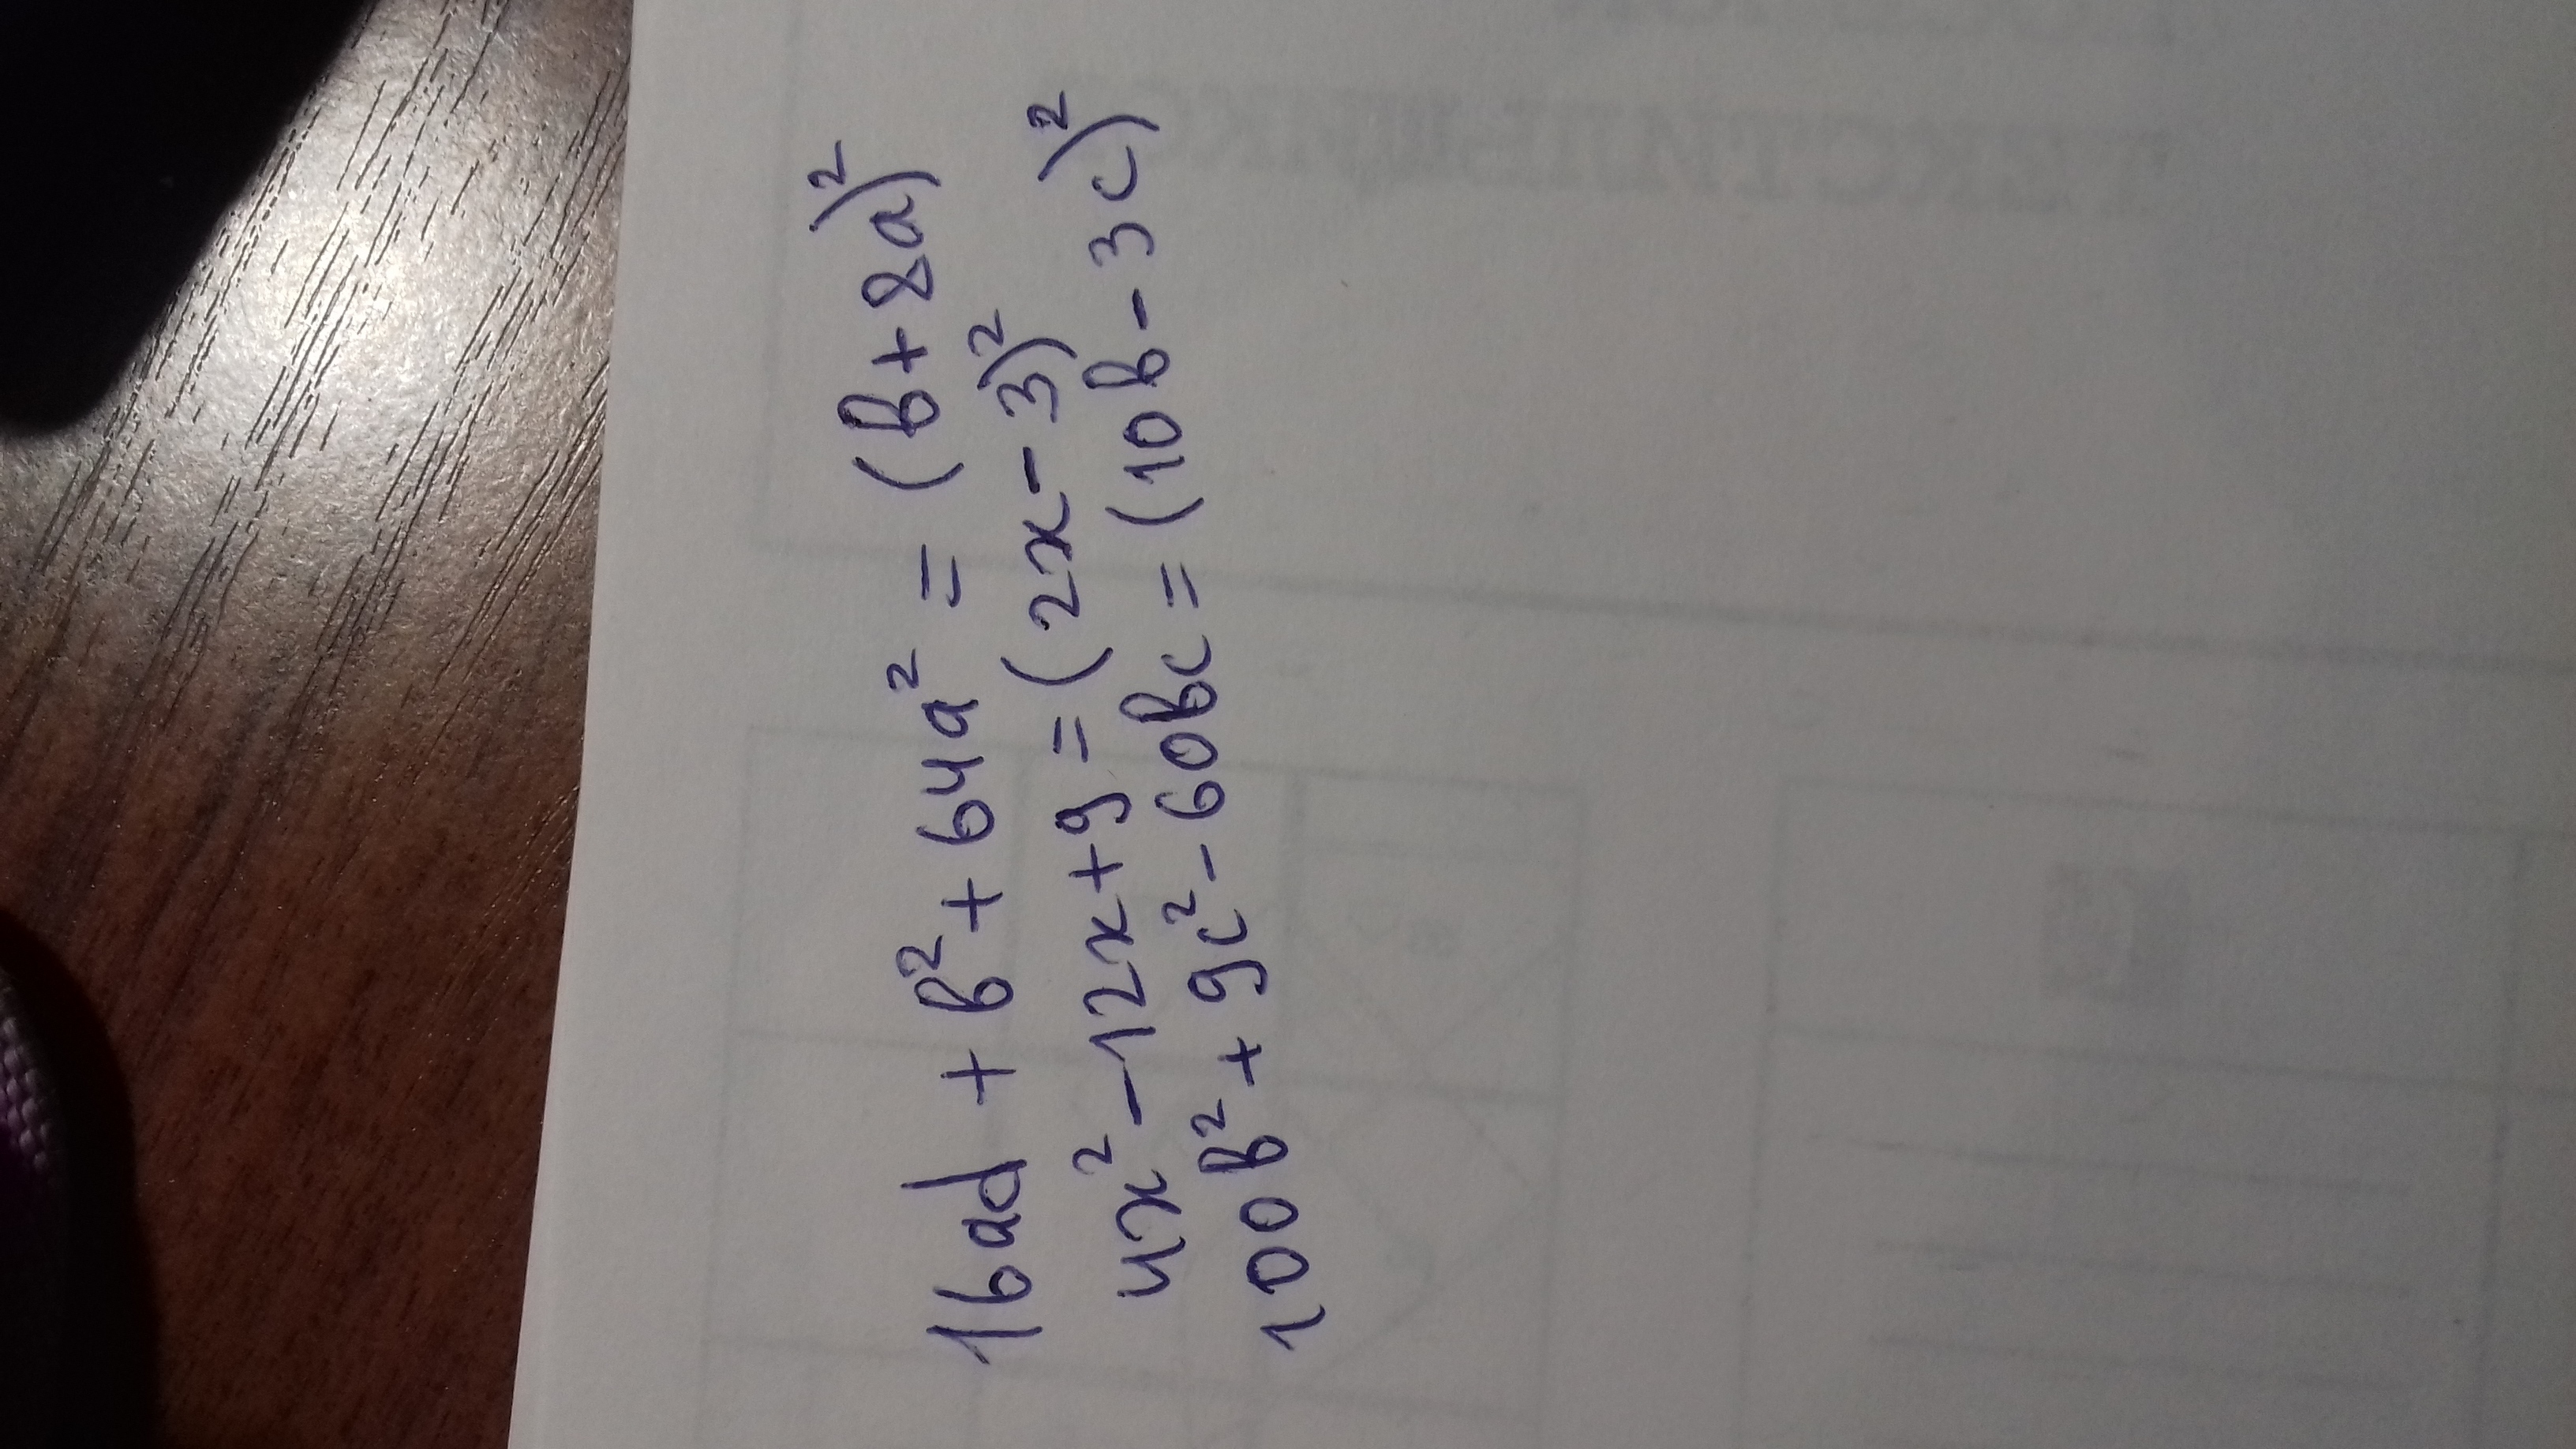 16ad + b² + 64a² = (b+8a)²
4x² - 12x + 9 = (2x - 3)²
100b² + 9c² - 60bc = (10b - 3c)²